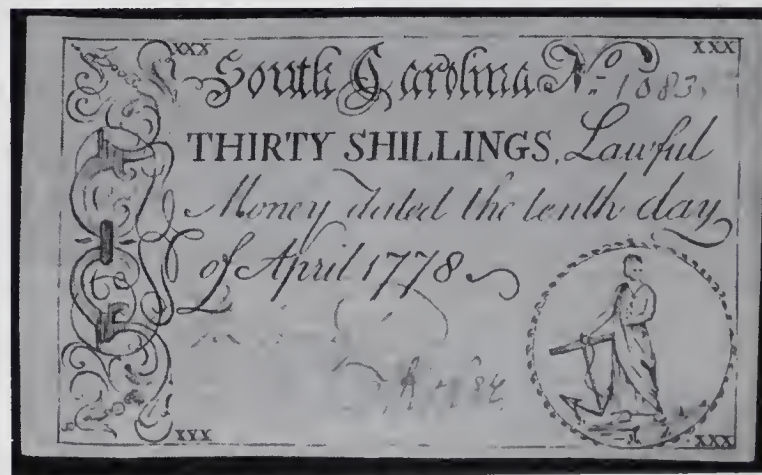 XXX XXX
South Carolina No. 1083.
THIRTY SHILLINGS, Lawful
Money dated the tenth day
of April 1778
XXX XXX